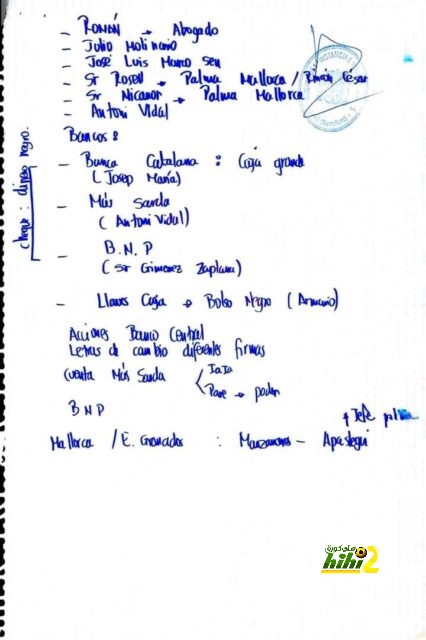 - ROMÁN → Abogado
- Julio Molinario
- José Luis Marco Seu
- Sr Rosell → Palma Mallorca / Simón César
- Sr Nicanor → Palma Mallorca
- Antoni Vidal
Bancos:
- Banca Catalana : Caja grande
(Josep María)
- Más Sarda
(Antoni Vidal)
- B.N.P
(Sr Gimenez Zaplana)
- Llaves Caja → Bolso Negro (Armario)
Acciones Banco Central
Letras de cambio diferentes firmas
Cuenta Más Sarda
Pare → poder
BNP
Mallorca / E. Granados : Manzanares - Apastegui
cheque : dinero negro.
هاي كورة
hihi2